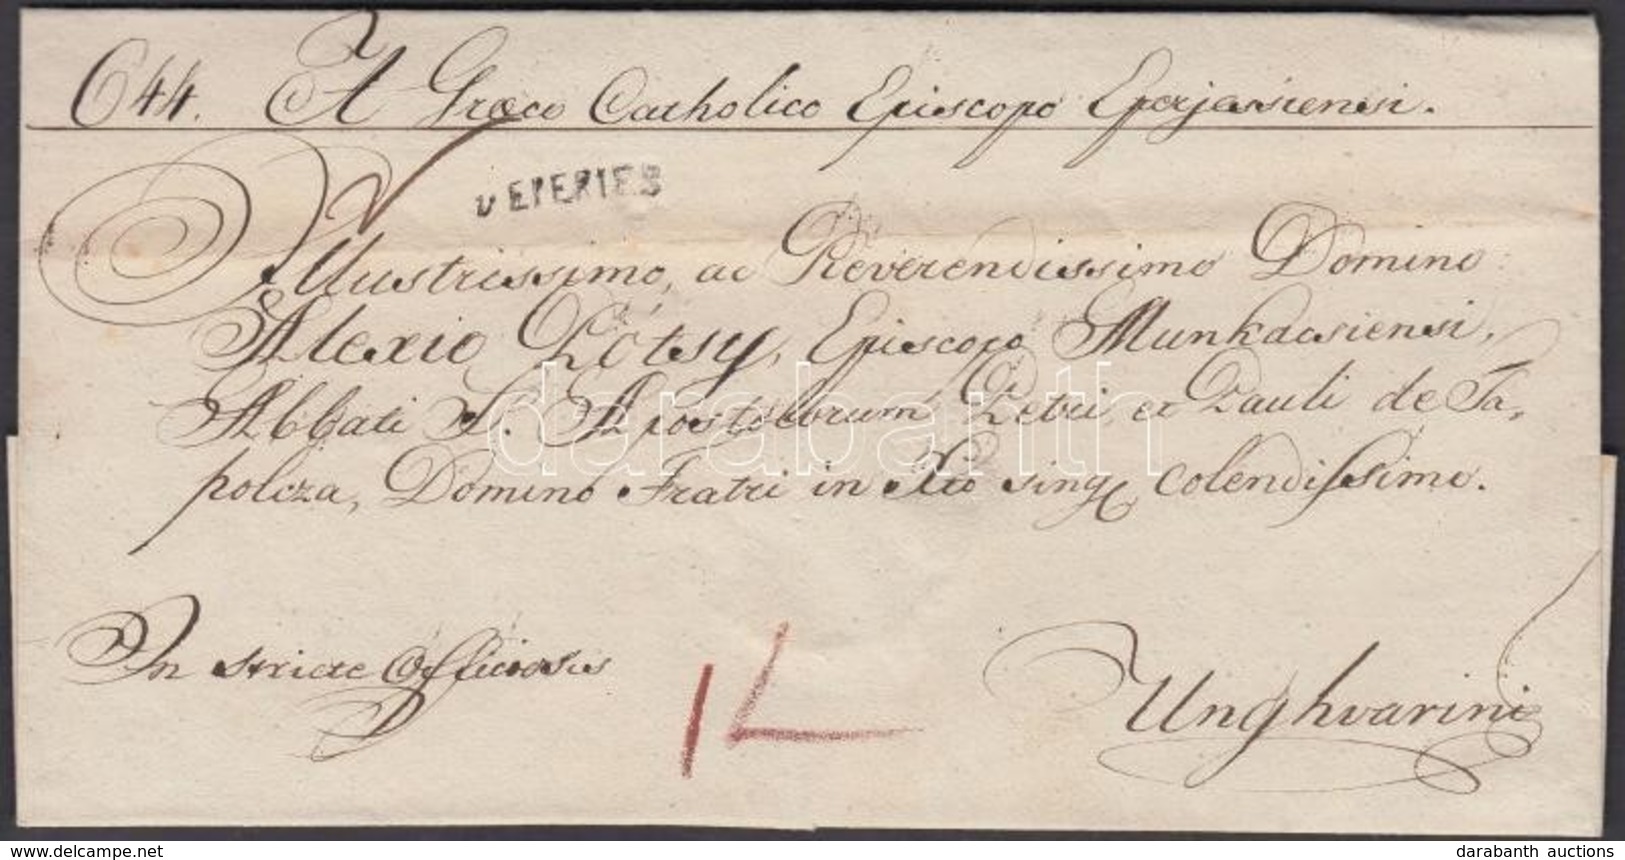 644. A Græco Catholico Episcopo Eperjessiensi.
v EPERIES
Illustrissimo, ac Reverendissimo Domino
Alexio Pótsy, Episcopo Munkacsiensi,
Abbati S. S. Apostolorum Petri, et Pauli de Ta,
polcza, Domino Fratri in Xto sing colendissimo.
darabanth
In stricte Officiosis
12
Unghvarini
www.delcampe.net
darabanth auctions